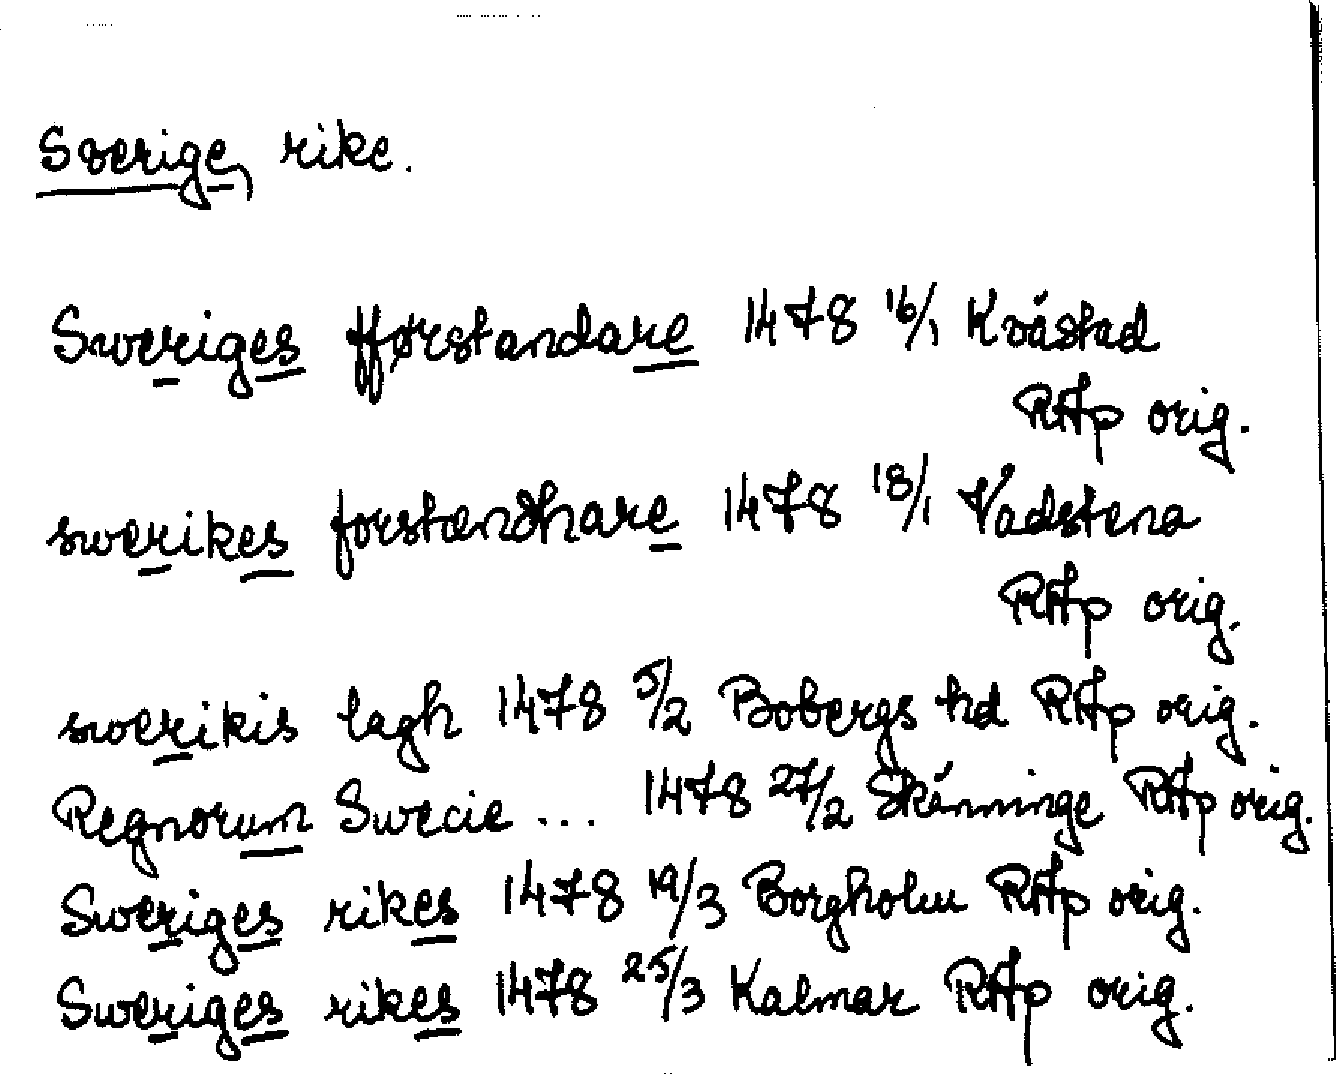 Sverige, rike.
Sweriges fførstandare 1478 16/1 Kvåstad
RAp orig.
swerikes forstændhare 1478 18/1 Vadstena
RAp orig.
swerikis lagh 1478 5/2 Bobergs hd RAp orig.
Regnorum Swecie ... 1478 27/2 Skänninge RAp orig.
Sweriges rikes 1478 19/3 Borgholm RAp orig.
Sweriges rikes 1478 25/3 Kalmar RAp orig.